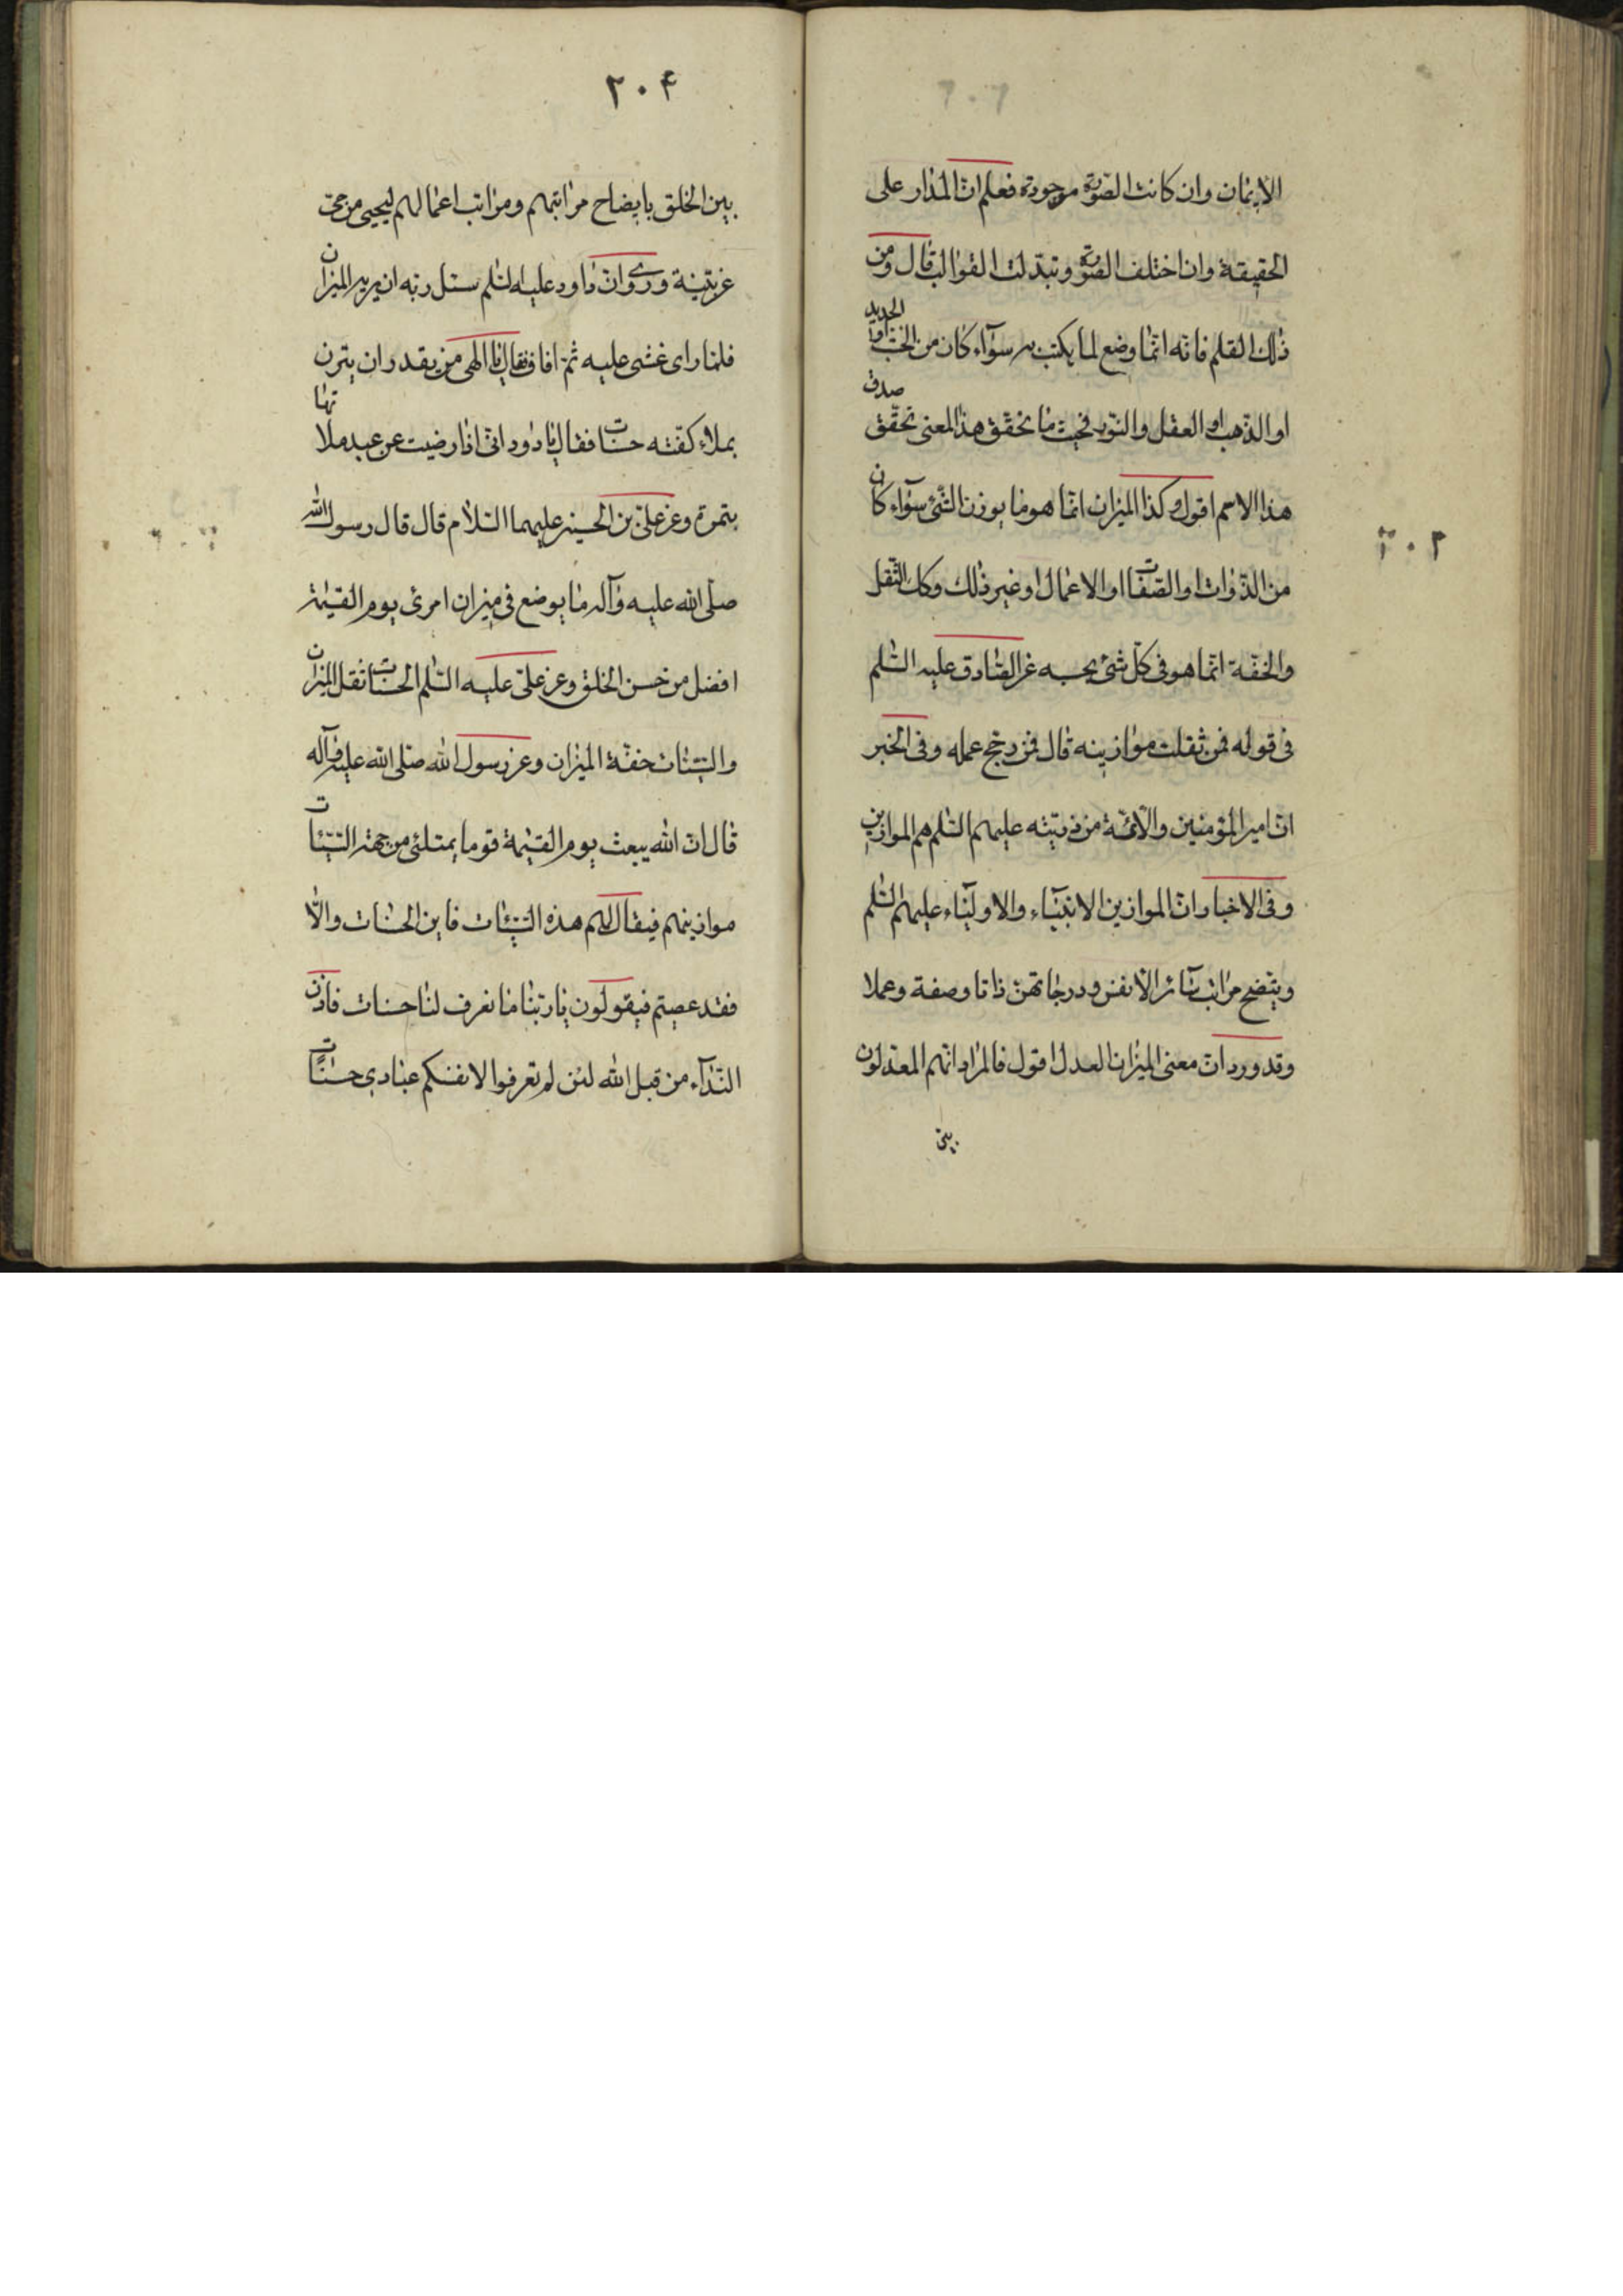 الايمان وان كانت الصّورة موجودة فعلم انّ المدار على
الحقيقة وان اختلف الصّورة وتبدّلت القوالب قال ومن
ذلك القلم فانّه انّما وضع لما يكتب به سوآء كان من الخشب او الحديد
او الذّهب او العقل والنّور فحيث ما تحقّق هذا المعنى تحقّق صدق
هذا الاسم اقول وكذا الميزان انّما هو ما يوزن الشّئ سوآء كان
من الذّوات او الصّفات او الاعمال او غير ذلك وكك الثّقل
والخفّة انّما هو فى كلّ شئ بحسبه عن الصّادق عليه السّلم
فى قوله فمن ثقلت موازينه قال فمن رجح عمله وفى الخبر
انّ امير المؤمنين والائمّة من ذريّته عليهم السّلم هم الموازين
وفى الاخبار انّ الموازين الانبيآء والاوليآء عليهم السّلم
ويتّضح مراتب سآئر الانفس ودرجاتهنّ ذاتا وصفة وعملا
وقد ورد انّ معنى الميزان العدل اقول فالمراد انّهم المعدّلون
بين
٢٠۴
بين الخلق بايضاح مراتبهم ومراتب اعمالهم ليحيى من حىّ
عن بيّنة وروى انّ داود عليه السّلم سئل ربّه ان يريه الميزان
فلمّا راى غشى عليه ثمّ افاق فقال يا الهى من يقدر ان يتزن
بملاء كفّته حسنات فقال يا داود انّى اذا رضيت عن عبد ملاتها
بتمرة وعن علىّ بن الحسين عليهما السّلام قال قال رسول الله
صلّى الله عليه وآله ما يوضع فى ميزان امرئ يوم القيمة
افضل من حسن الخلق وعن علىّ عليه السّلم الحسنات ثقل الميزان
والسّيّئات خفّة الميزان وعن رسول الله صلّى الله عليه وآله
قال انّ الله يبعث يوم القيمة قوما يمتلئ من جهة السّيّئات
موازينهم فيقال لهم هذه السّيّئات فاين الحسنات والّا
فقد عصيتم فيقولون يا ربّنا ما نعرف لنا حسنات فاذن
النّدآء من قبل الله لئن لم تعرفوا لانفسكم عبادى حسنات